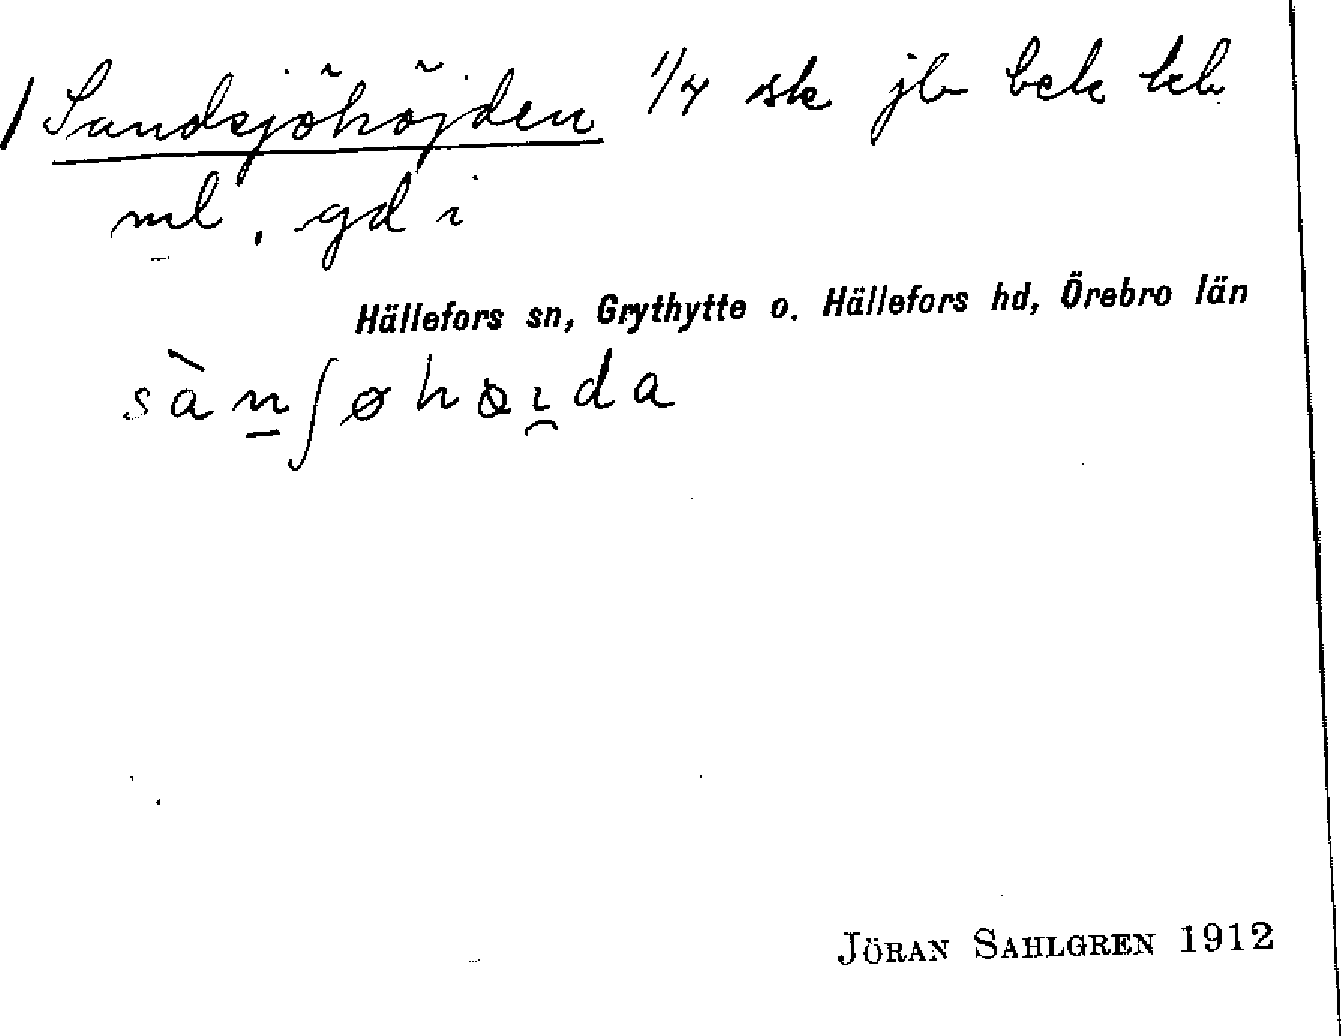 / Sandsjöhöjden 1/4 sk jb bek kb
ml, gd i
Hällefors sn, Grythytte o. Hällefors hd, Örebro län
sànʃøhøɪ̯da
JÖRAN SAHLGREN 1912